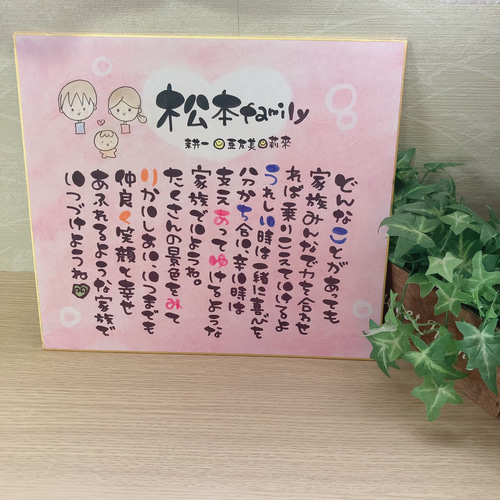 松本family
耕一 亜友美 莉來
どんなことがあっても
家族みんなで力を合わせ
れば乗りこえていけるよ
うれしい時は一緒に喜んで
分かち合い辛い時は
支えあってゆけるような
家族でいようね。
たくさんの景色をみて
りかいしあいいつまでも
仲良く笑顔と幸せ
あふれてるような家族で
いつづけようね